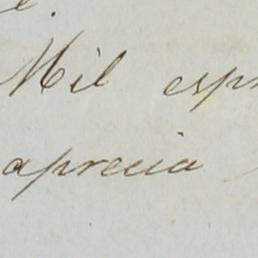 Mil esp
aprecia